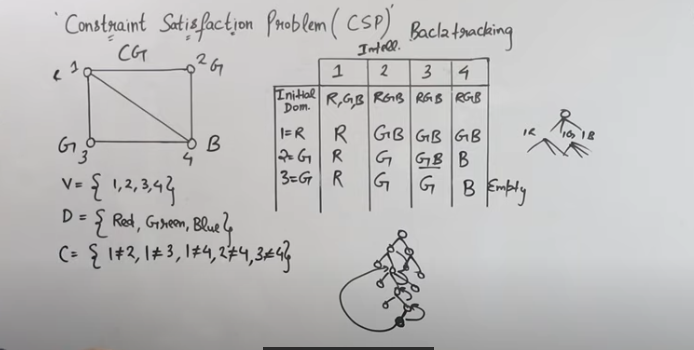 Constraint Satisfaction Problem (CSP)
Intell. Backtracking
CG
1
2 G
G 3
4 B
V = { 1,2,3,4}
D = { Red, Green, Blue}
C = { 1≠2, 1≠3, 1≠4, 2≠4, 3≠4}
1 2 3 4
Initial Dom. R,G,B RGB RGB RGB
1=R R GB GB GB
2=G R G GB B
3=G R G G B Empty
1R 1G 1B